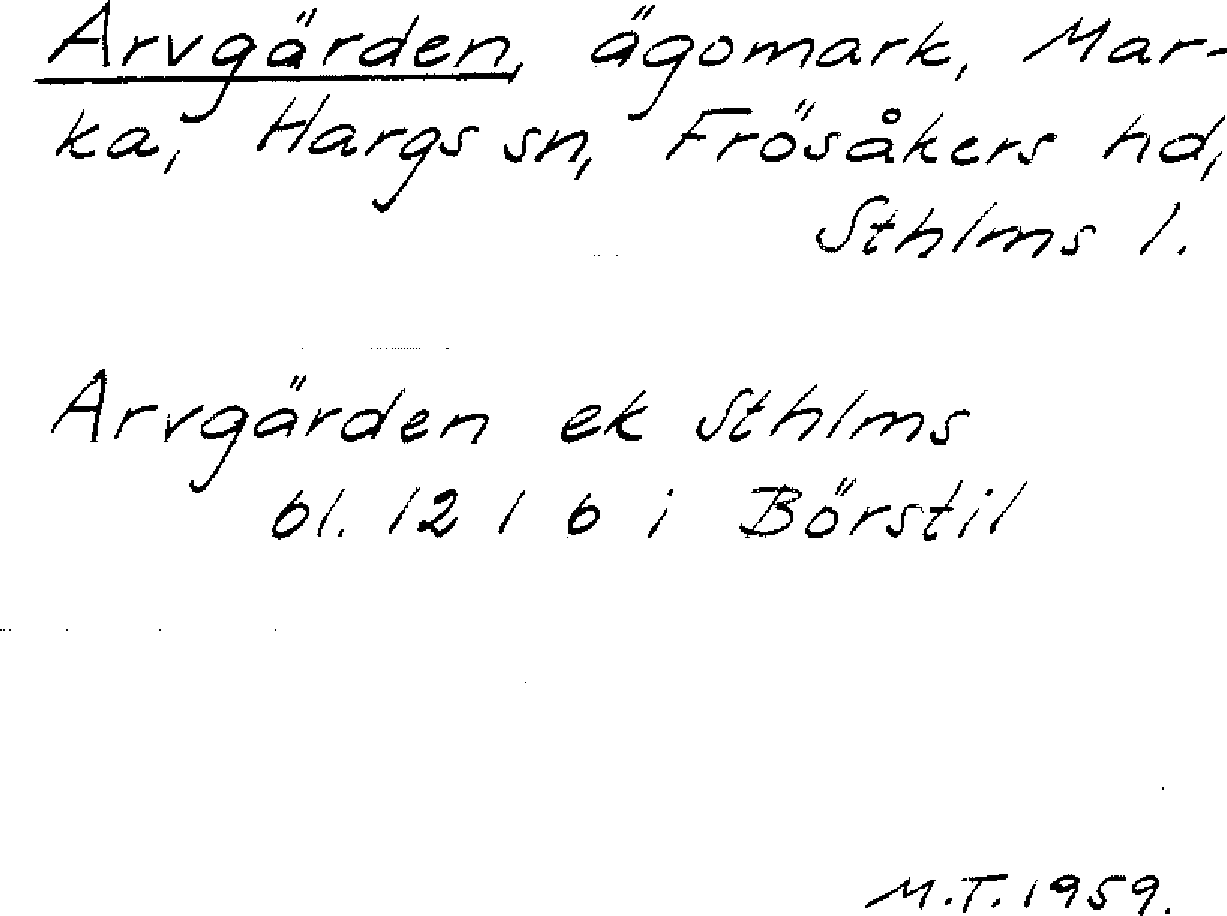 Arvgärden, ägomark, Mar-
ka, Hargs sn, Frösåkers hd,
Sthlms l.
Arvgärden ek Sthlms
bl. 12 1 b i Börstil
M.T. 1959.